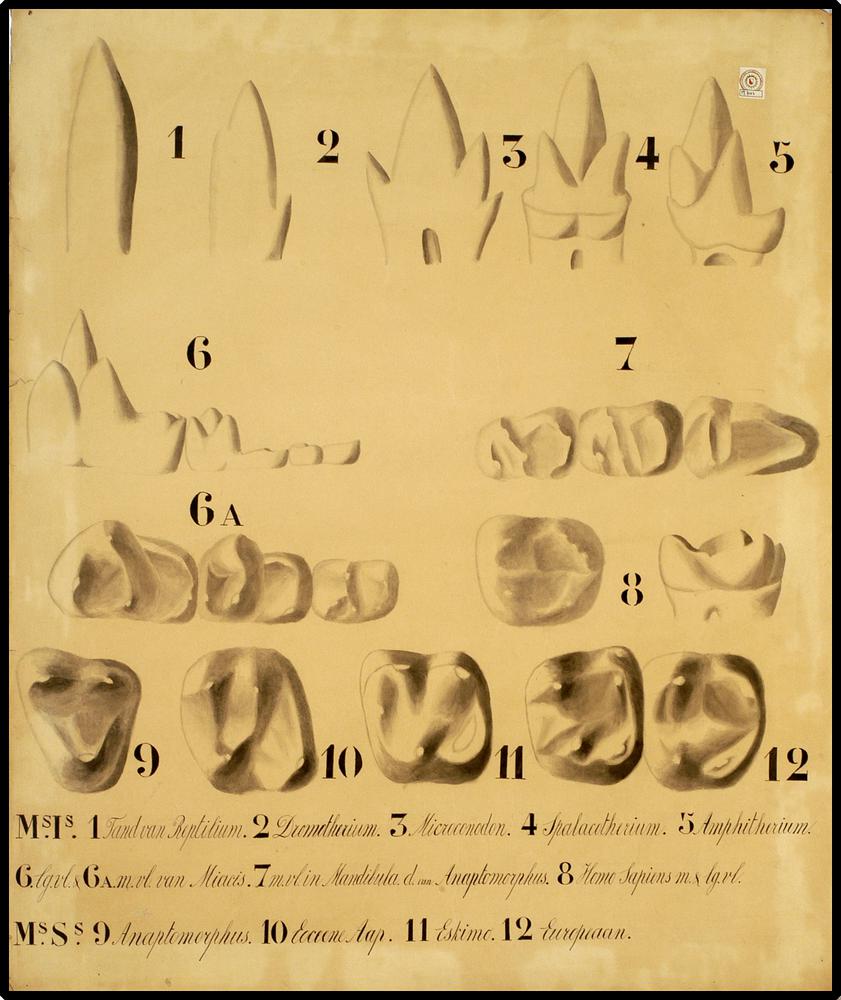 1 2 3 4 5
6 7
6A
8
9 10 11 12
MˢIˢ. 1 Tand van Reptilium. 2 Dromotherium. 3 Microconodon. 4 Spalacotherium. 5 Amphitherium.
6. lg.vl. & 6A. m.vl. van Miacis. 7 m.vl. in Mandibula d. van Anaptomorphus. 8 Homo Sapiens m. & lg.vl.
MˢSˢ. 9 Anaptomorphus. 10 Eocene Aap. 11 Eskimo. 12 Europeaan.